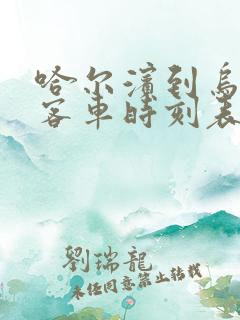 哈尔滨到乌
客车时刻表
劉瑞龍
未经同意禁止转载